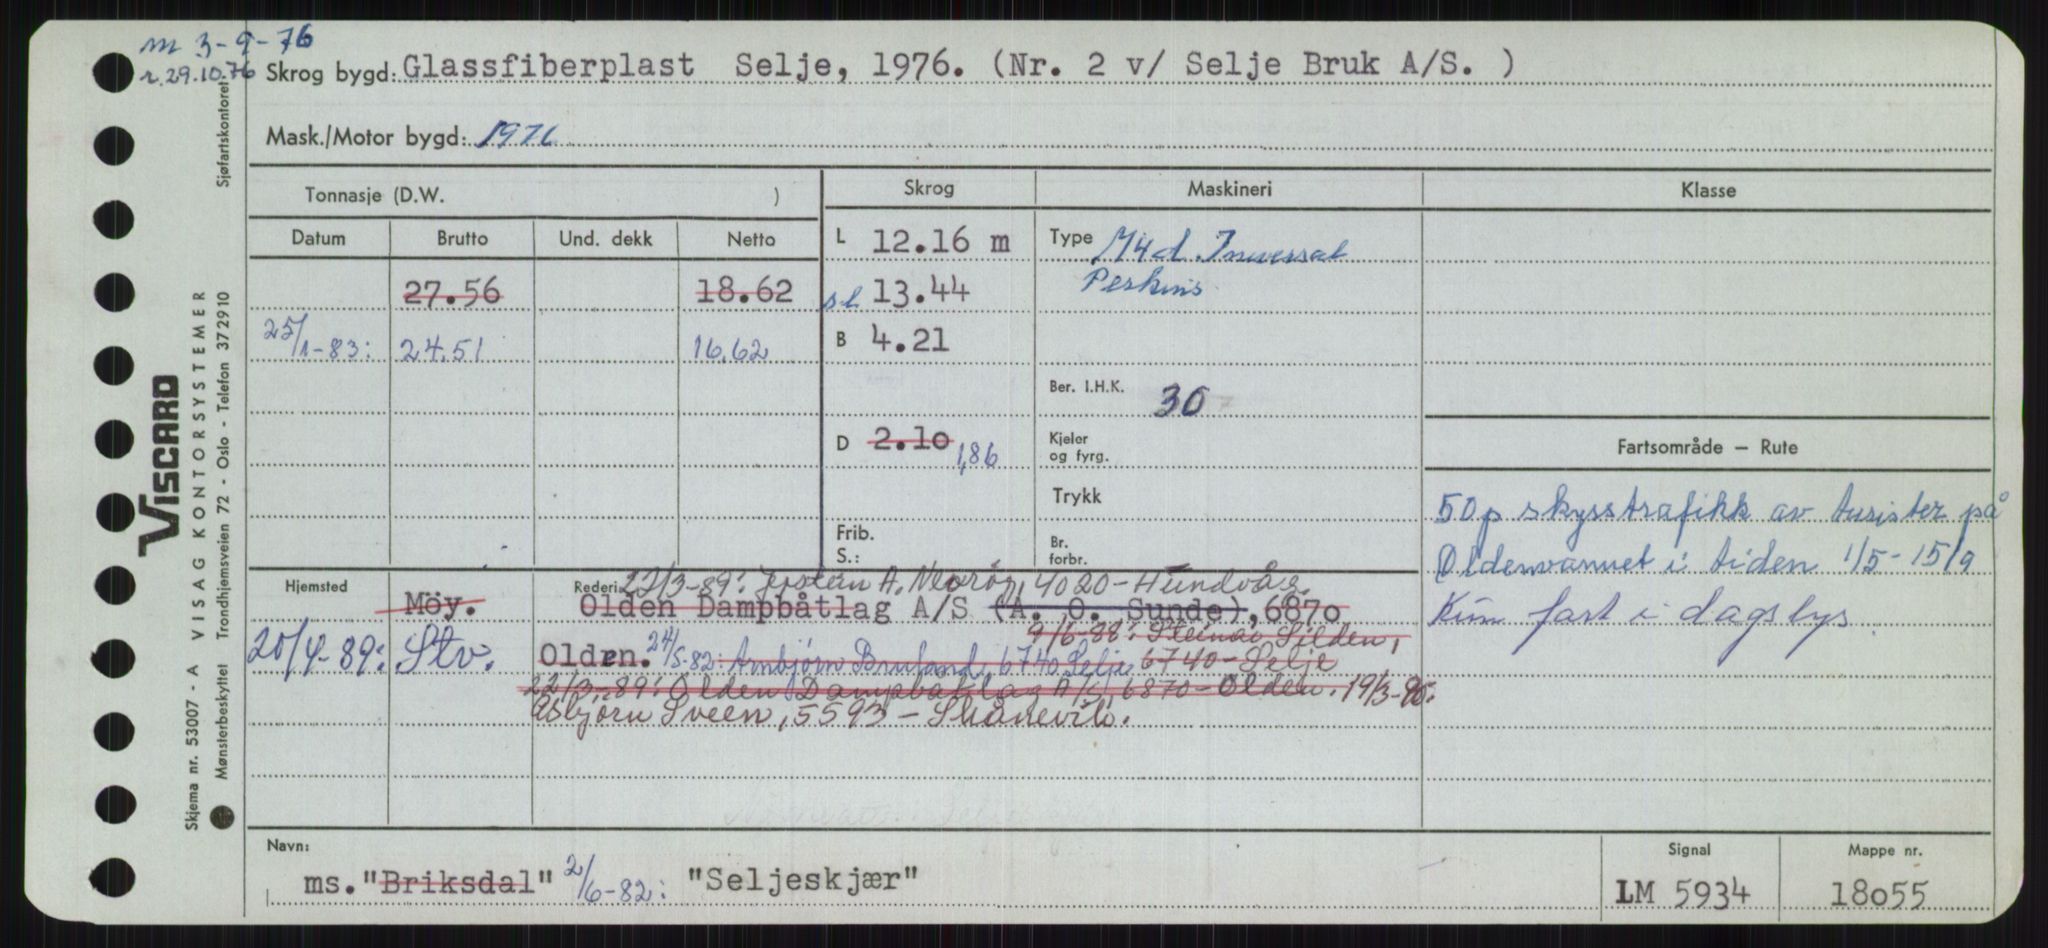 m 3-9-76
r. 29.10.76
Skrog bygd: Glassfiberplast Selje, 1976. (Nr. 2 v/ Selje Bruk A/S. )
Mask./Motor bygd: 1976
Tonnasje (D.W. )
Skrog
Maskineri
Klasse
Datum
Brutto
Und. dekk
Netto
27.56
18.62
25/1-83:
24.51
16.62
L 12.16 m
sl 13.44
B 4.21
D 2.10 1,86
Frib.
S.:
Type M4d.
Perkins
Ber. I.H.K. 30
Kjeler
og fyrg.
Trykk
Br.
forbr.
Fartsområde — Rute
50p skysstrafikk av turister på
Oldenvannet i tiden 1/5-15/9
Kun fart i dagslys
Hjemsted
Möy.
20/4-89: Stv.
Rederi 22/3-89: A. 4020-Hundvåg.
Olden Dampbåtlag A/S (A. O. Sunde), 6870
9/6-88: Steinar Silden,
Olden. 24/5-82: Arnbjørn 6740 Selje 6740-Selje
22/3-89: Olden Dampbåtlag A/S, 6870-Olden. 19/3-90:
Asbjørn Sveen, 5593-Skånevik.
Navn:
ms."Briksdal" 2/6-82: "Seljeskjær"
Signal
LM 5934
Mappe nr.
18055
Sjøfartskontoret
VISCARD
Skjema nr. 53007 - A VISAG KONTORSYSTEMER
Mønsterbeskyttet Trondhjemsveien 72 - Oslo - Telefon 372910